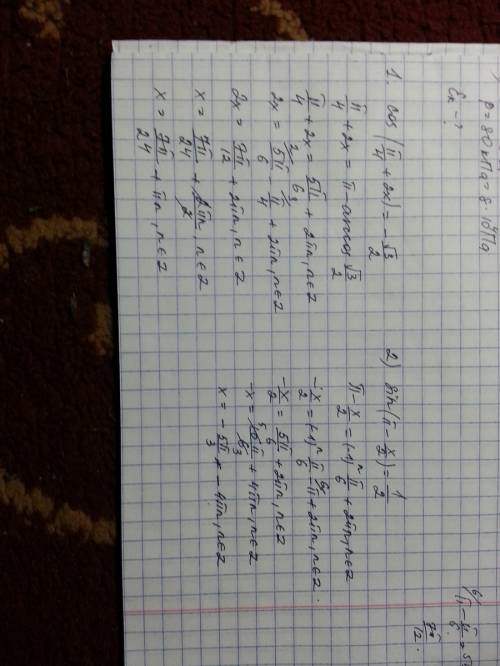 p = 80 кПа = 8·10⁴Па
Eк - ?
1. cos (π/4 + 2x) = - √3/2
π/4 + 2x = π - arccos √3/2
π/4 + 2x = 5π/6 + 2πn, n∈Z
2x = 5π/6 - π/4 + 2πn, n∈Z
2x = 7π/12 + 2πn, n∈Z
x = 7π/24 + 2πn/2, n∈Z
x = 7π/24 + πn, n∈Z
2) sin (π - x/2) = 1/2
π - x/2 = (-1)ⁿ π/6 + 2πn, n∈Z
- x/2 = (-1)ⁿ π/6 - π + 2πn, n∈Z.
- x/2 = 5π/6 + 2πn, n∈Z
-x = 5π/3 + 4πn, n∈Z
x = - 5π/3 x - 4πn, n∈Z